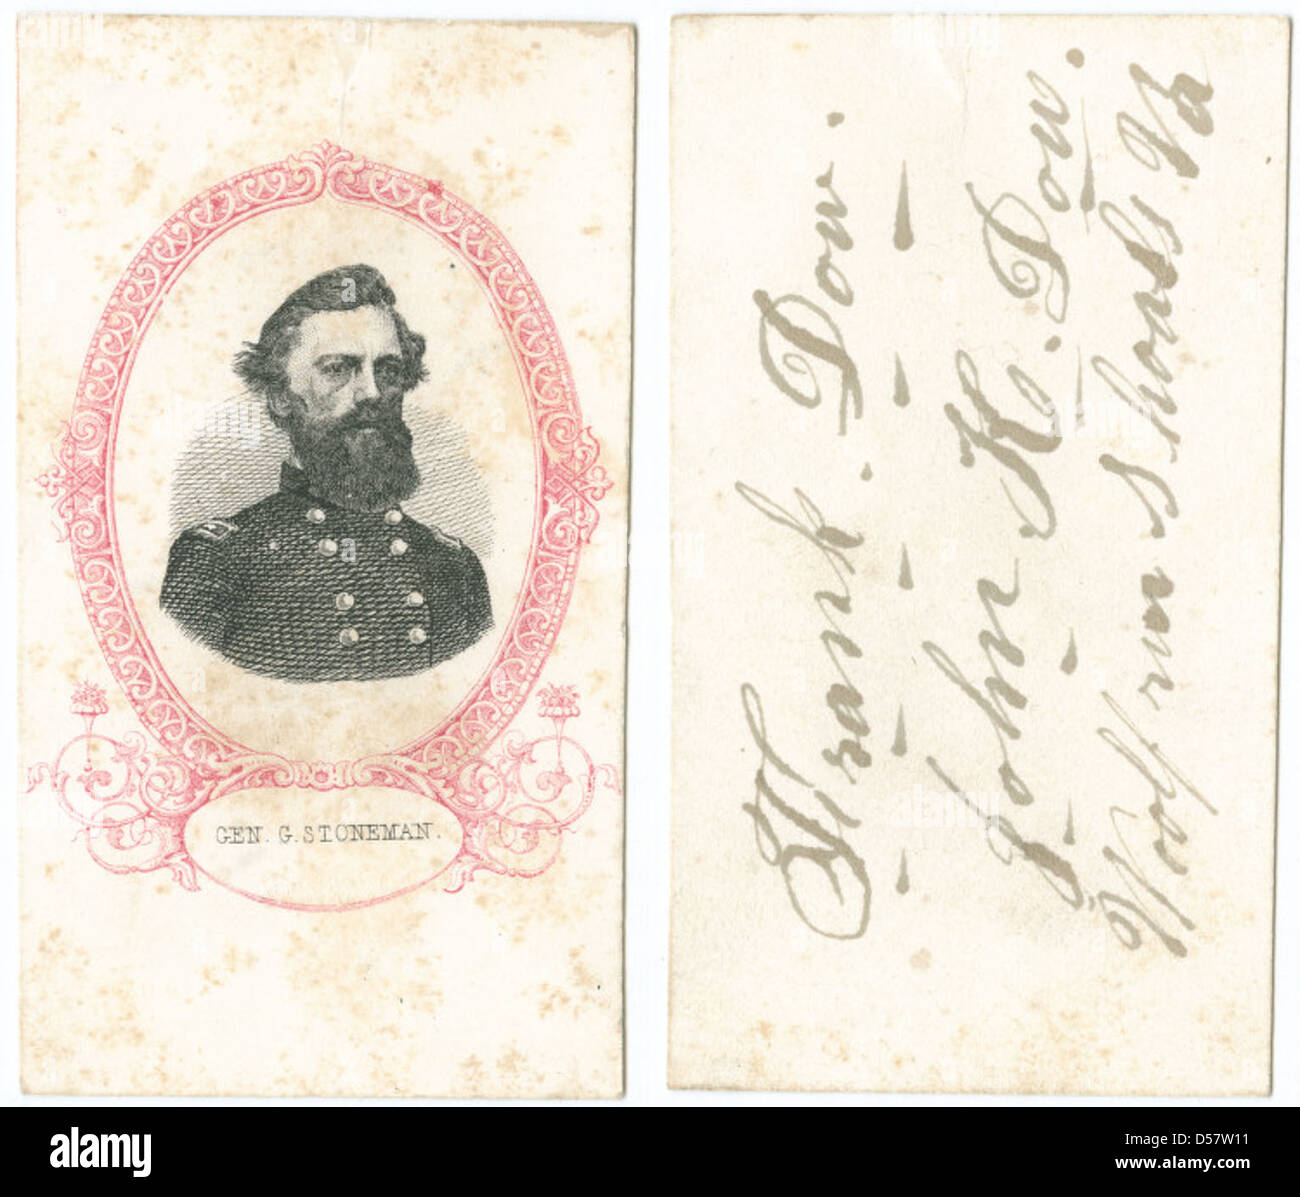 GEN. G. STONEMAN.
Frank. Dow.
John K. Dow.
Wolf run shoals Va
alamy
Image ID: D57W11
www.alamy.com